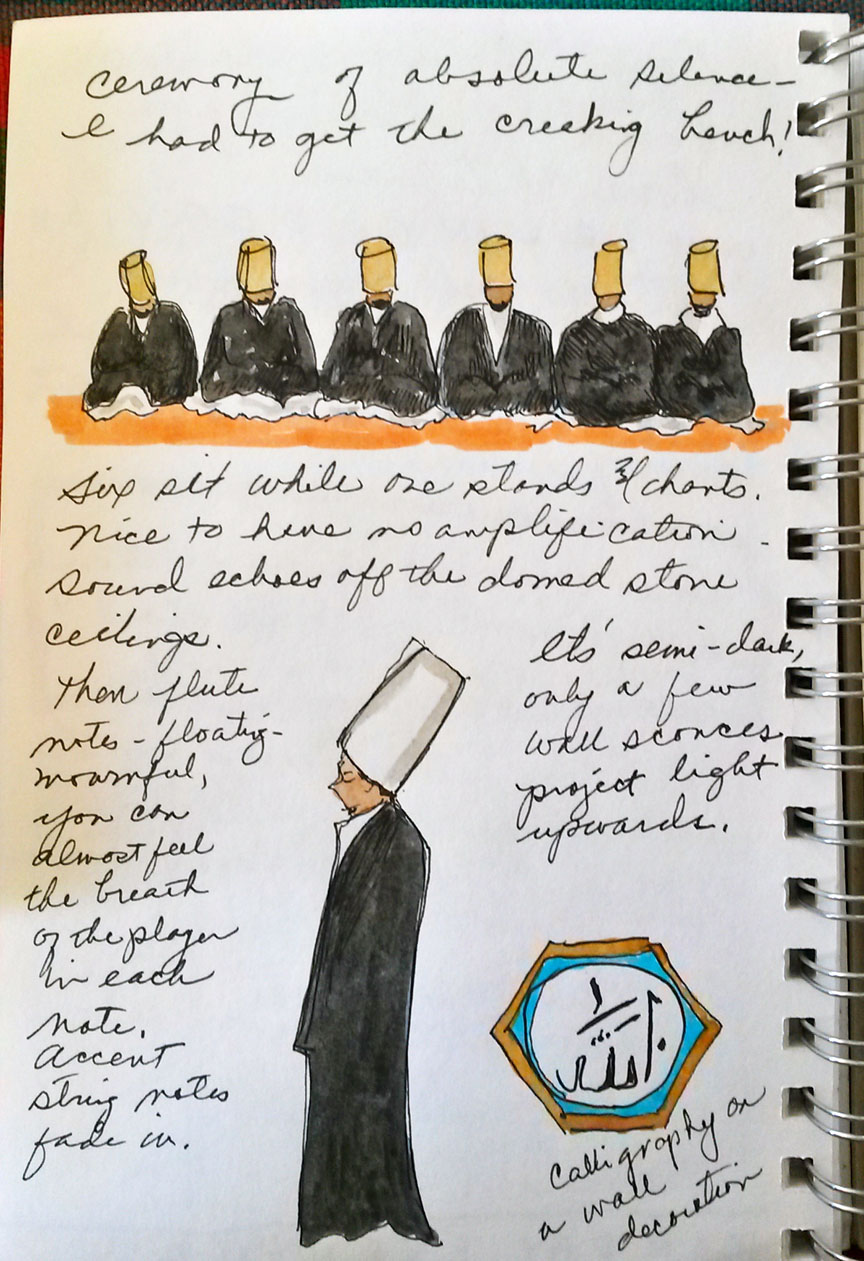 ceremony of absolute silence -
I had to get the creaking bench!
six sit while one stands & chants.
nice to have no amplification -
sound echoes off the domed stone
ceilings.
Then flute
notes - floating -
mournful,
you can
almost feel
the breath
of the player
in each
note.
accent
string notes
fade in.
It's semi-dark,
only a few
wall sconces
project light
upwards.
calligraphy on
a wall
decoration